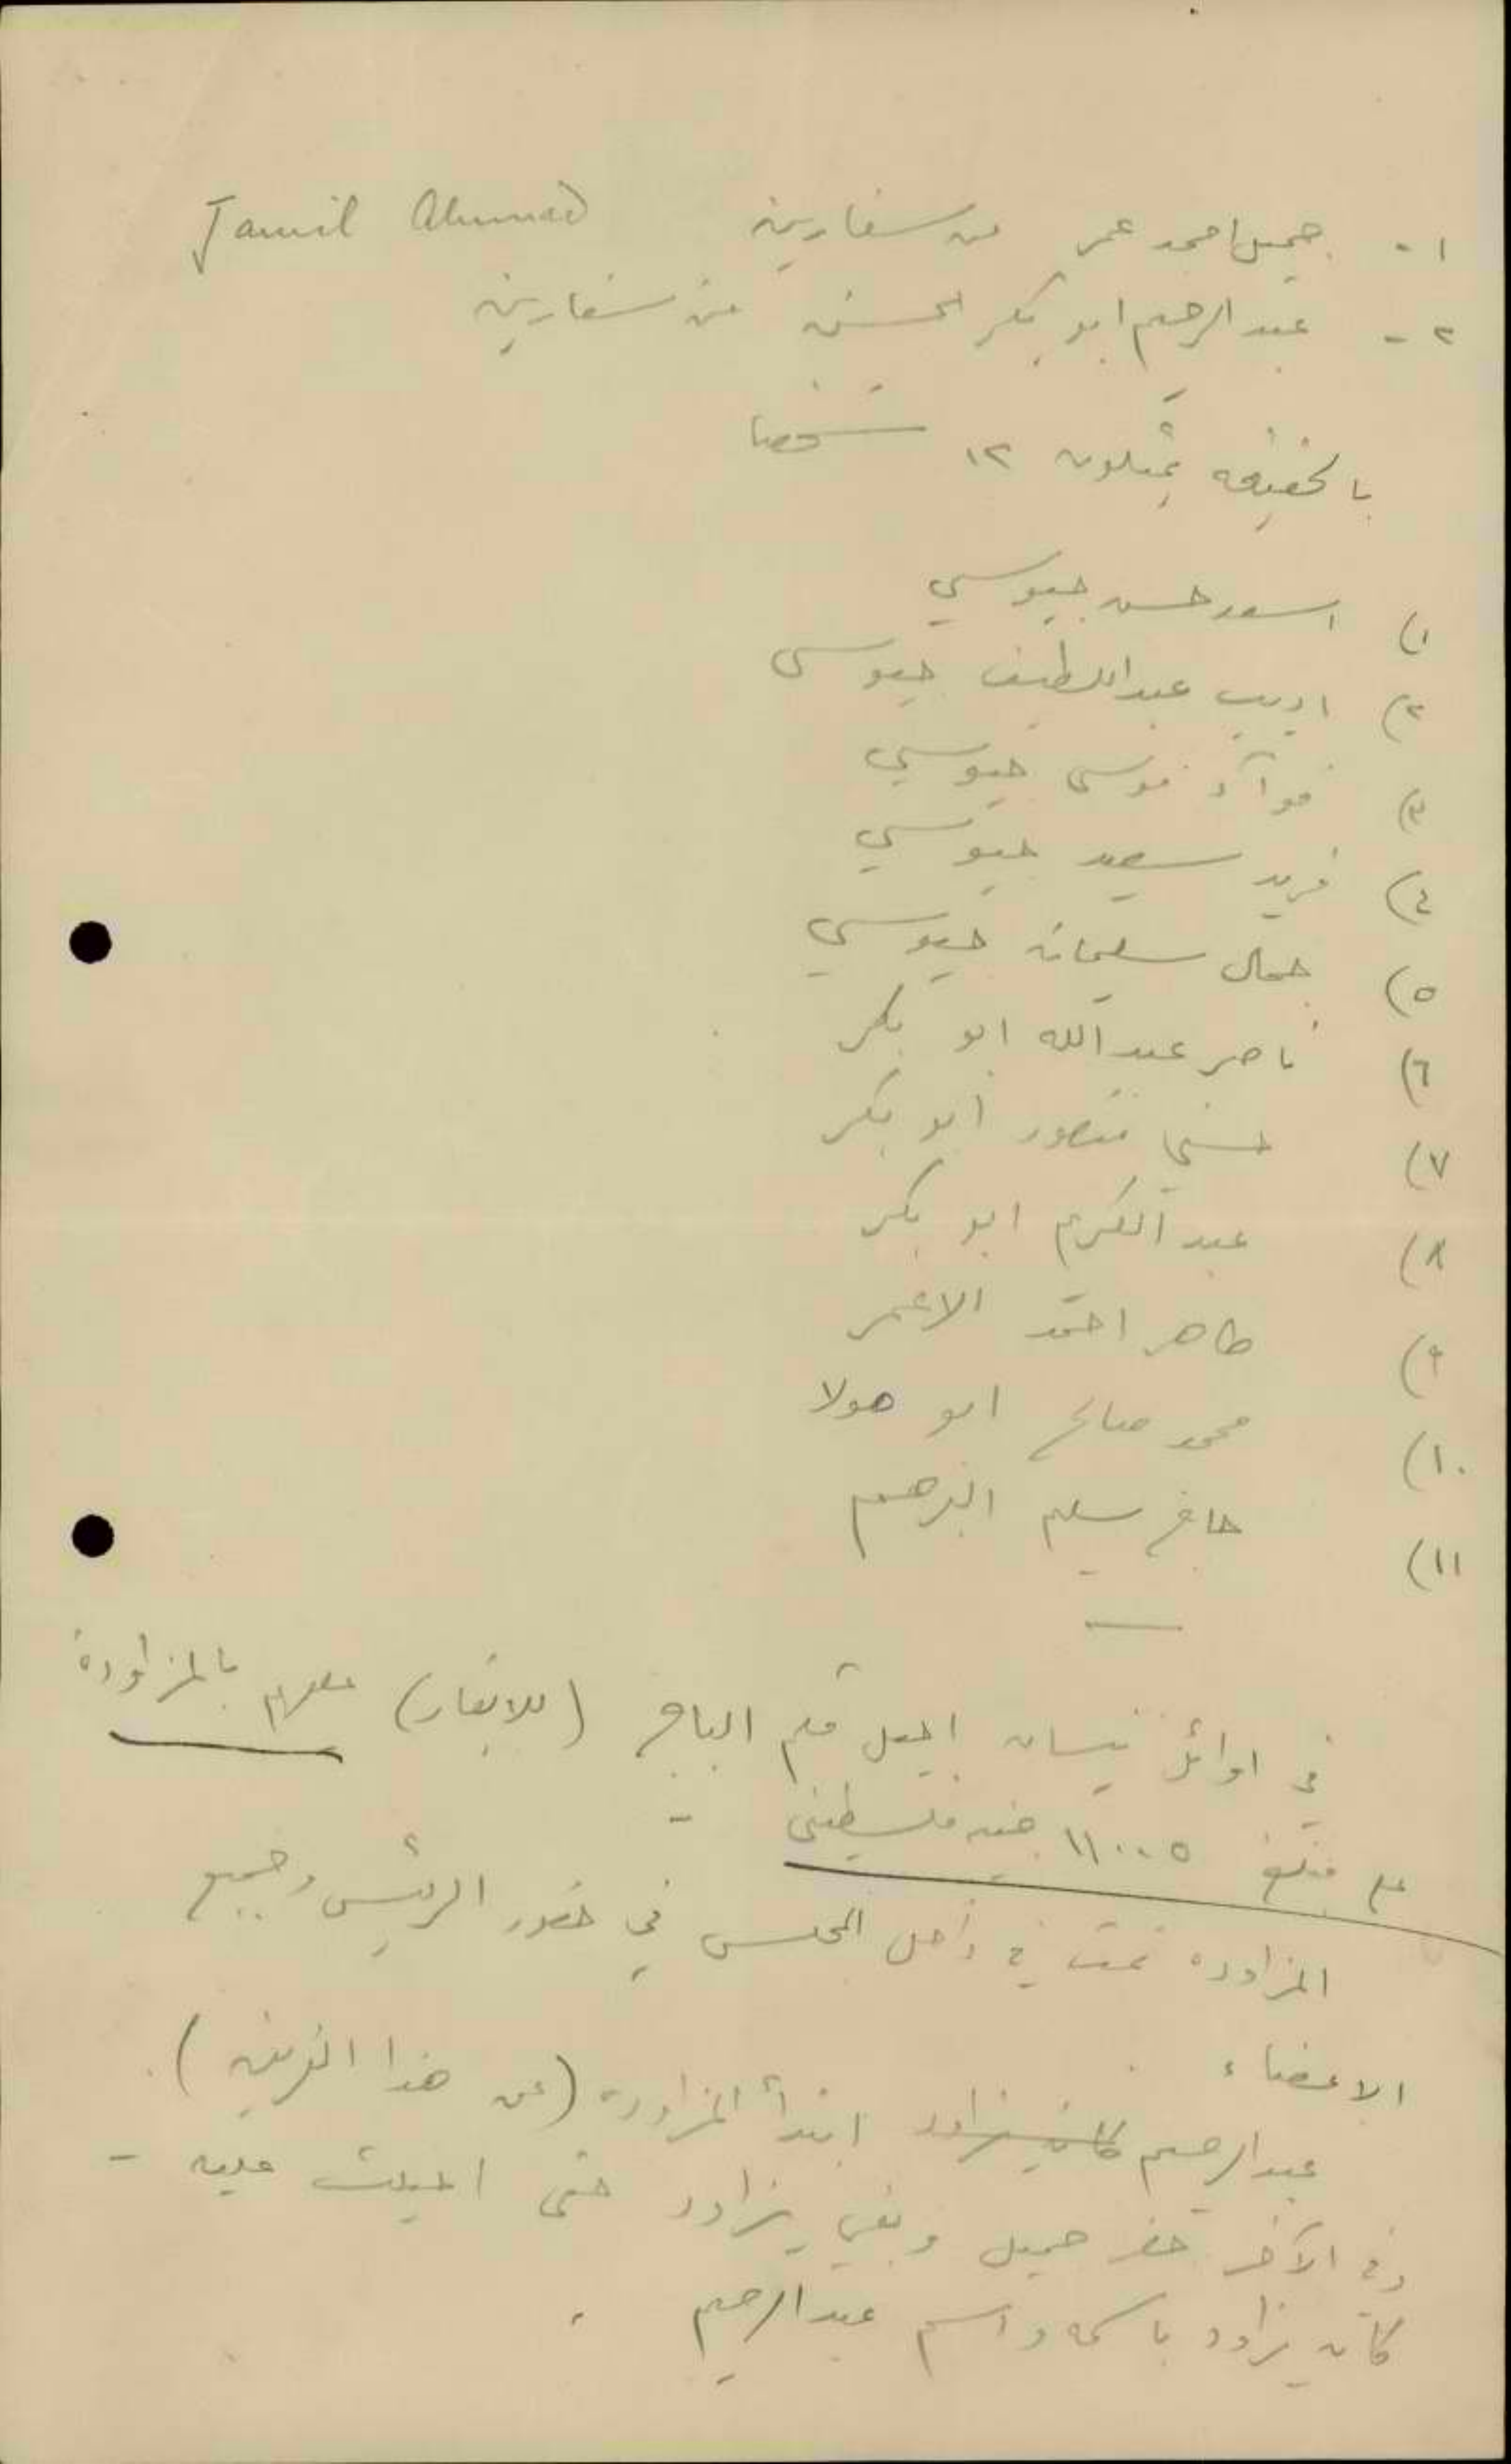 ١ - جميل احمد عمر من سفارين Jamil Ahmad
٢ - عبد الرحيم ابو بكر الحسن من سفارين
بالحقيقه يمثلون ١٢ شخصا
١) اسعد حسن جيوسي
٢) اديب عبد اللطيف جيوسى
٣) فوآد موسى جيوسي
٤) فريد سعيد جيوسي
٥) جمال سليمان جيوسي
٦) ناصر عبد الله ابو بكر
٧) حسني منصور ابو بكر
٨) عبد الكريم ابو بكر
٩) طاهر احمد الاعمر
١٠) محمد صالح ابو هولا
١١) سليم
في اوائل نيسان احيل قلم الباج (للابقار) عليهم بالمزاودة
على مبلغ ١١٠٠٥ جنيه فلسطيني -
المزاوده تمت في داخل المجلس في حضور الرئيس وجميع
الاعضاء .
عبد الرحيم كان يزاود ابتدأ المزاودة (عن هذا الفريق) .
وفي الآخر حضر جميل وبقي يزاود حتى احيلت عليه -
كان يزاود باسمه واسم عبد الرحيم .